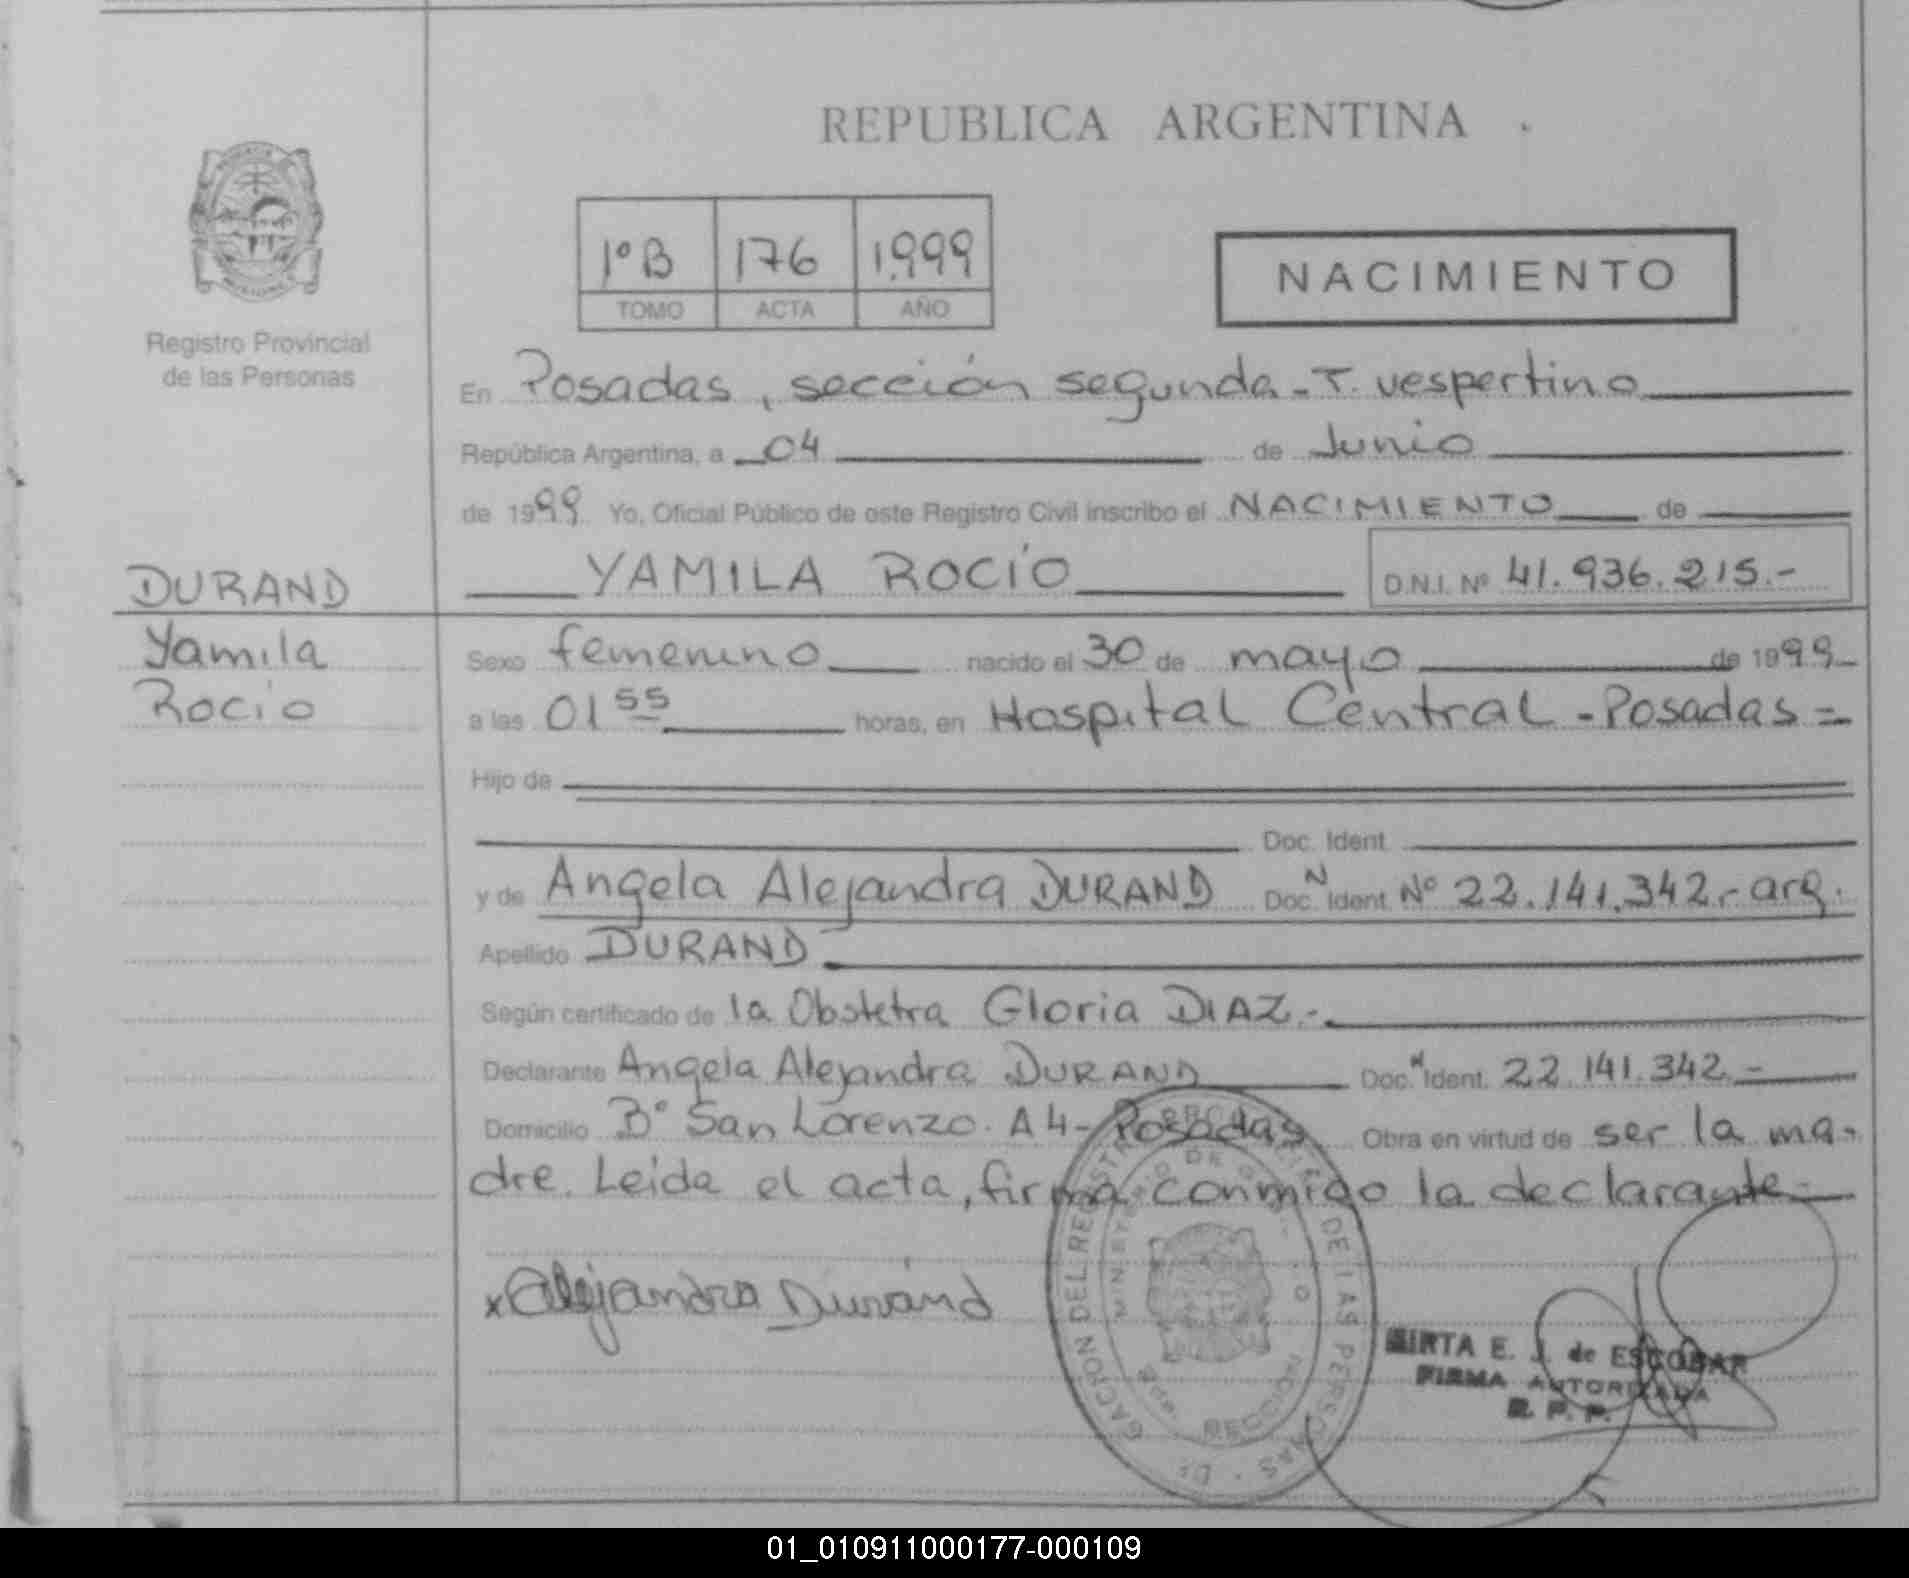 REPUBLICA ARGENTINA
1º B 176 1.999
TOMO ACTA AÑO
NACIMIENTO
Registro Provincial
de las Personas
En Posadas, sección segunda - T. vespertino
República Argentina, a 04 de Junio
de 1999 Yo, Oficial Público de este Registro Civil inscribo el NACIMIENTO de
YAMILA ROCÍO D.N.I. Nº 41.936.215.-
DURAND
Yamila
Rocio
Sexo femenino nacido el 30 de mayo de 1999
a las 01 55 horas, en Hospital Central - Posadas =
Hijo de
Doc. Ident.
y de Angela Alejandra DURAND Doc. N Ident. Nº 22.141.342.- arg.
Apellido DURAND
Según certificado de la Obstetra Gloria DIAZ.-
Declarante Angela Alejandra DURAND Doc. N Ident. 22.141.342.-
Domicilio Bº San Lorenzo. A 4 - Posadas Obra en virtud de ser la ma-
dre. Leida el acta, firma conmigo la declarante-
x Alejandra Durand
DEL REGISTRO DE LAS PERSONAS
MINISTERIO DE
MIRTA E. J. de ESCOBAR
FIRMA AUTORIZADA
R. P. P.
01_010911000177-000109